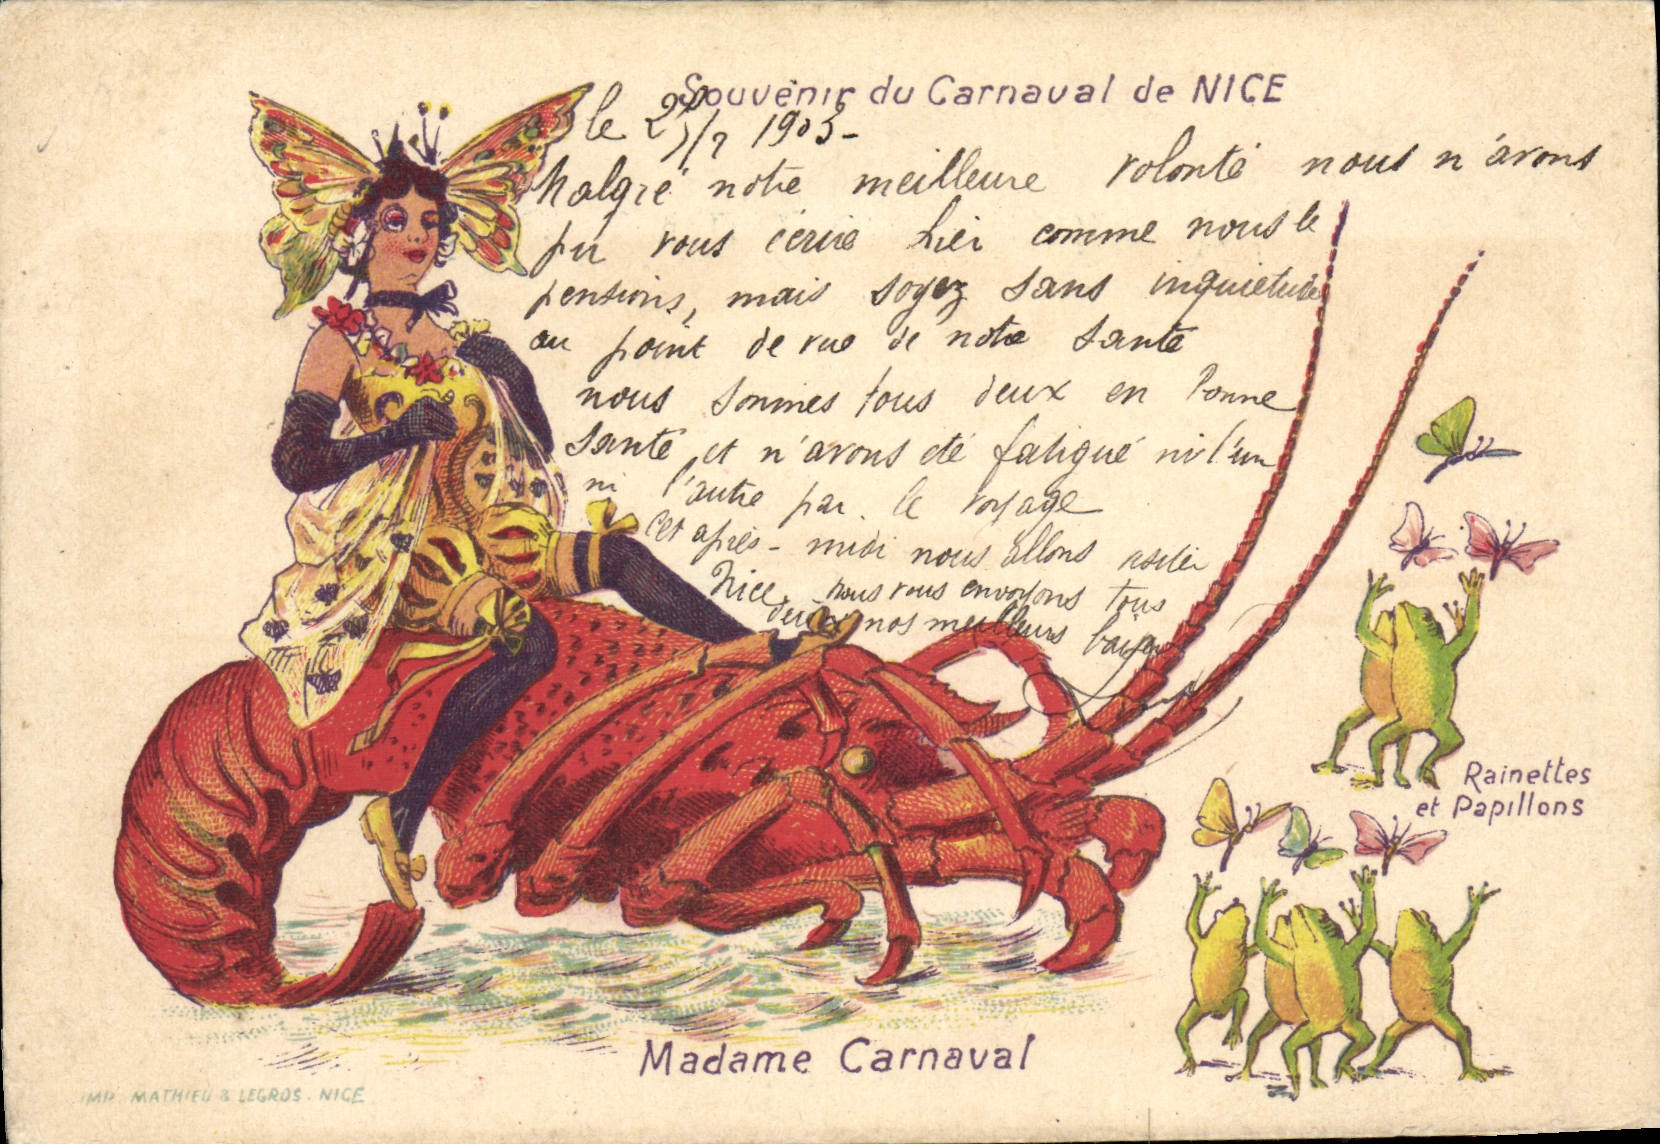 Souvenir du Carnaval de NICE
le 25/2 1903-
Malgré notre meilleure volonté nous n'avons
pu vous écrire hier comme nous le
pensions, mais soyez sans inquietude
au point de vue de notre santé
nous sommes tous deux en bonne
santé et n'avons été fatigué ni l'un
ni l'autre par le voyage
Cet après-midi nous allons visiter
Nice, nous vous envoyons tous
deux nos meilleurs baisers
Rainettes
et Papillons
Madame Carnaval
IMP. MATHIEU & LEGROS. NICE